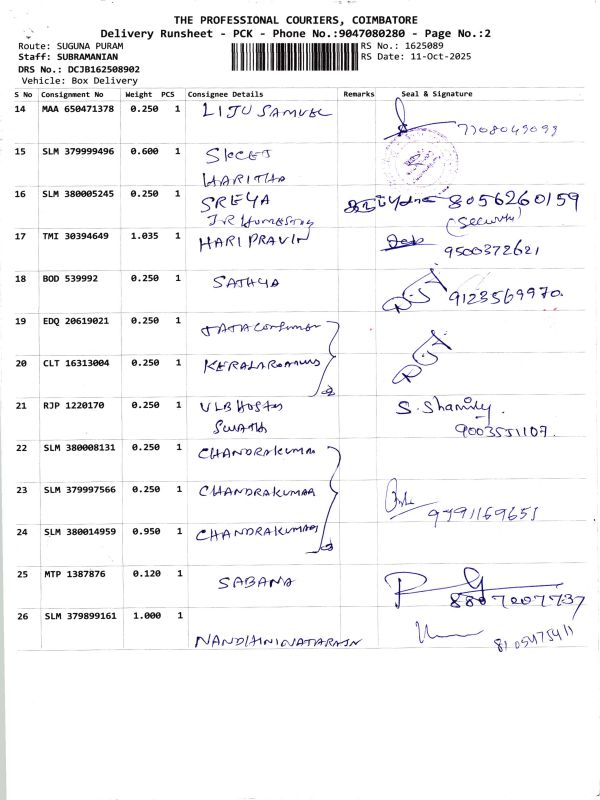 THE PROFESSIONAL COURIERS, COIMBATORE
Delivery Runsheet - PCK - Phone No.:9047080280 - Page No.:2
Route: SUGUNA PURAM RS No.: 1625089
Staff: SUBRAMANIAN RS Date: 11-Oct-2025
DRS No.: DCJB162508902
Vehicle: Box Delivery
S No Consignment No Weight PCS Consignee Details Remarks Seal & Signature
14 MAA 650471378 0.250 1 LIJU SAMUEL
7708049093
15 SLM 379999496 0.600 1 SKCET
HARITHA
16 SLM 380005245 0.250 1 SREYA 8056260159
(Security)
17 TMI 30394649 1.035 1 HARI PRAVIN
9500372621
18 BOD 539992 0.250 1 SATHYA
9123569970.
19 EDQ 20619021 0.250 1 TATA Consumer
20 CLT 16313004 0.250 1
21 RJP 1220170 0.250 1 VLB Hostes S. Shamily.
SWATHI 9003551107.
22 SLM 380008131 0.250 1 CHANDRAKUMAR
23 SLM 379997566 0.250 1 CHANDRAKUMAR
9791169651
24 SLM 380014959 0.950 1 CHANDRAKUMAR
25 MTP 1387876 0.120 1 SABANA
8807007737
26 SLM 379899161 1.000 1
NANDHINI NATARAJN